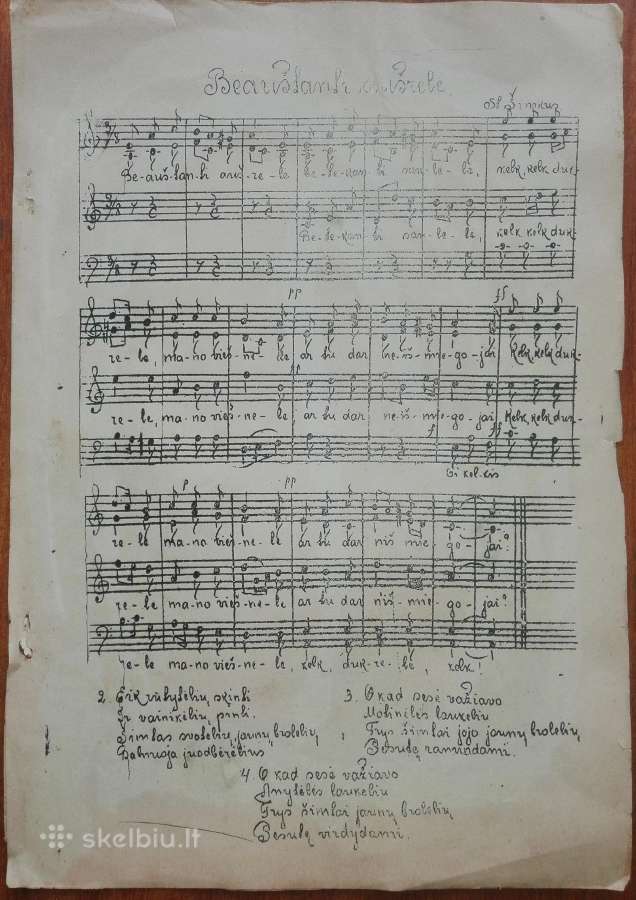 Beauštanti aušrelė
St. Šimkus
Be-auš-tan-ti auš-re-le be-te-kan-ti sau-le-le, kelk, kelk duk-
Be-te-kan-ti sau-le-le, kelk kelk duk-
re-le, ma-no vieš-ne-le ar tu dar ne-iš-mie-go-jai Kelk, kelk duk-
pp
ff
re-le, ma-no vieš-ne-le ar tu dar ne-iš-mie-go-jai Kelk, kelk duk-
pp
f
ff
Oi kel-kis
p
pp
re-le ma-no vieš-ne-le ar tu dar niš mie-go-jai?
re-le ma-no vieš-ne-le ar tu dar niš-mie-go-jai?
re-le ma-no vieš-ne-le, kelk, duk-re-le, kelk!
2. Eik rūtytėlių skinti
Ir vainikėlių pinti.
Šimtas svotelių, jaunų brolelių,
Balnoja juodbėrėlius
3. O kad sesė važiavo
Motinėlės laukeliu
Trys šimtai jojo jaunų brolelių,
Sesulę ramindami.
4. O kad sesė važiavo
Anytėlės laukeliu
Trys šimtai jaunų brolelių,
Sesulę virdydami.
skelbiu.lt